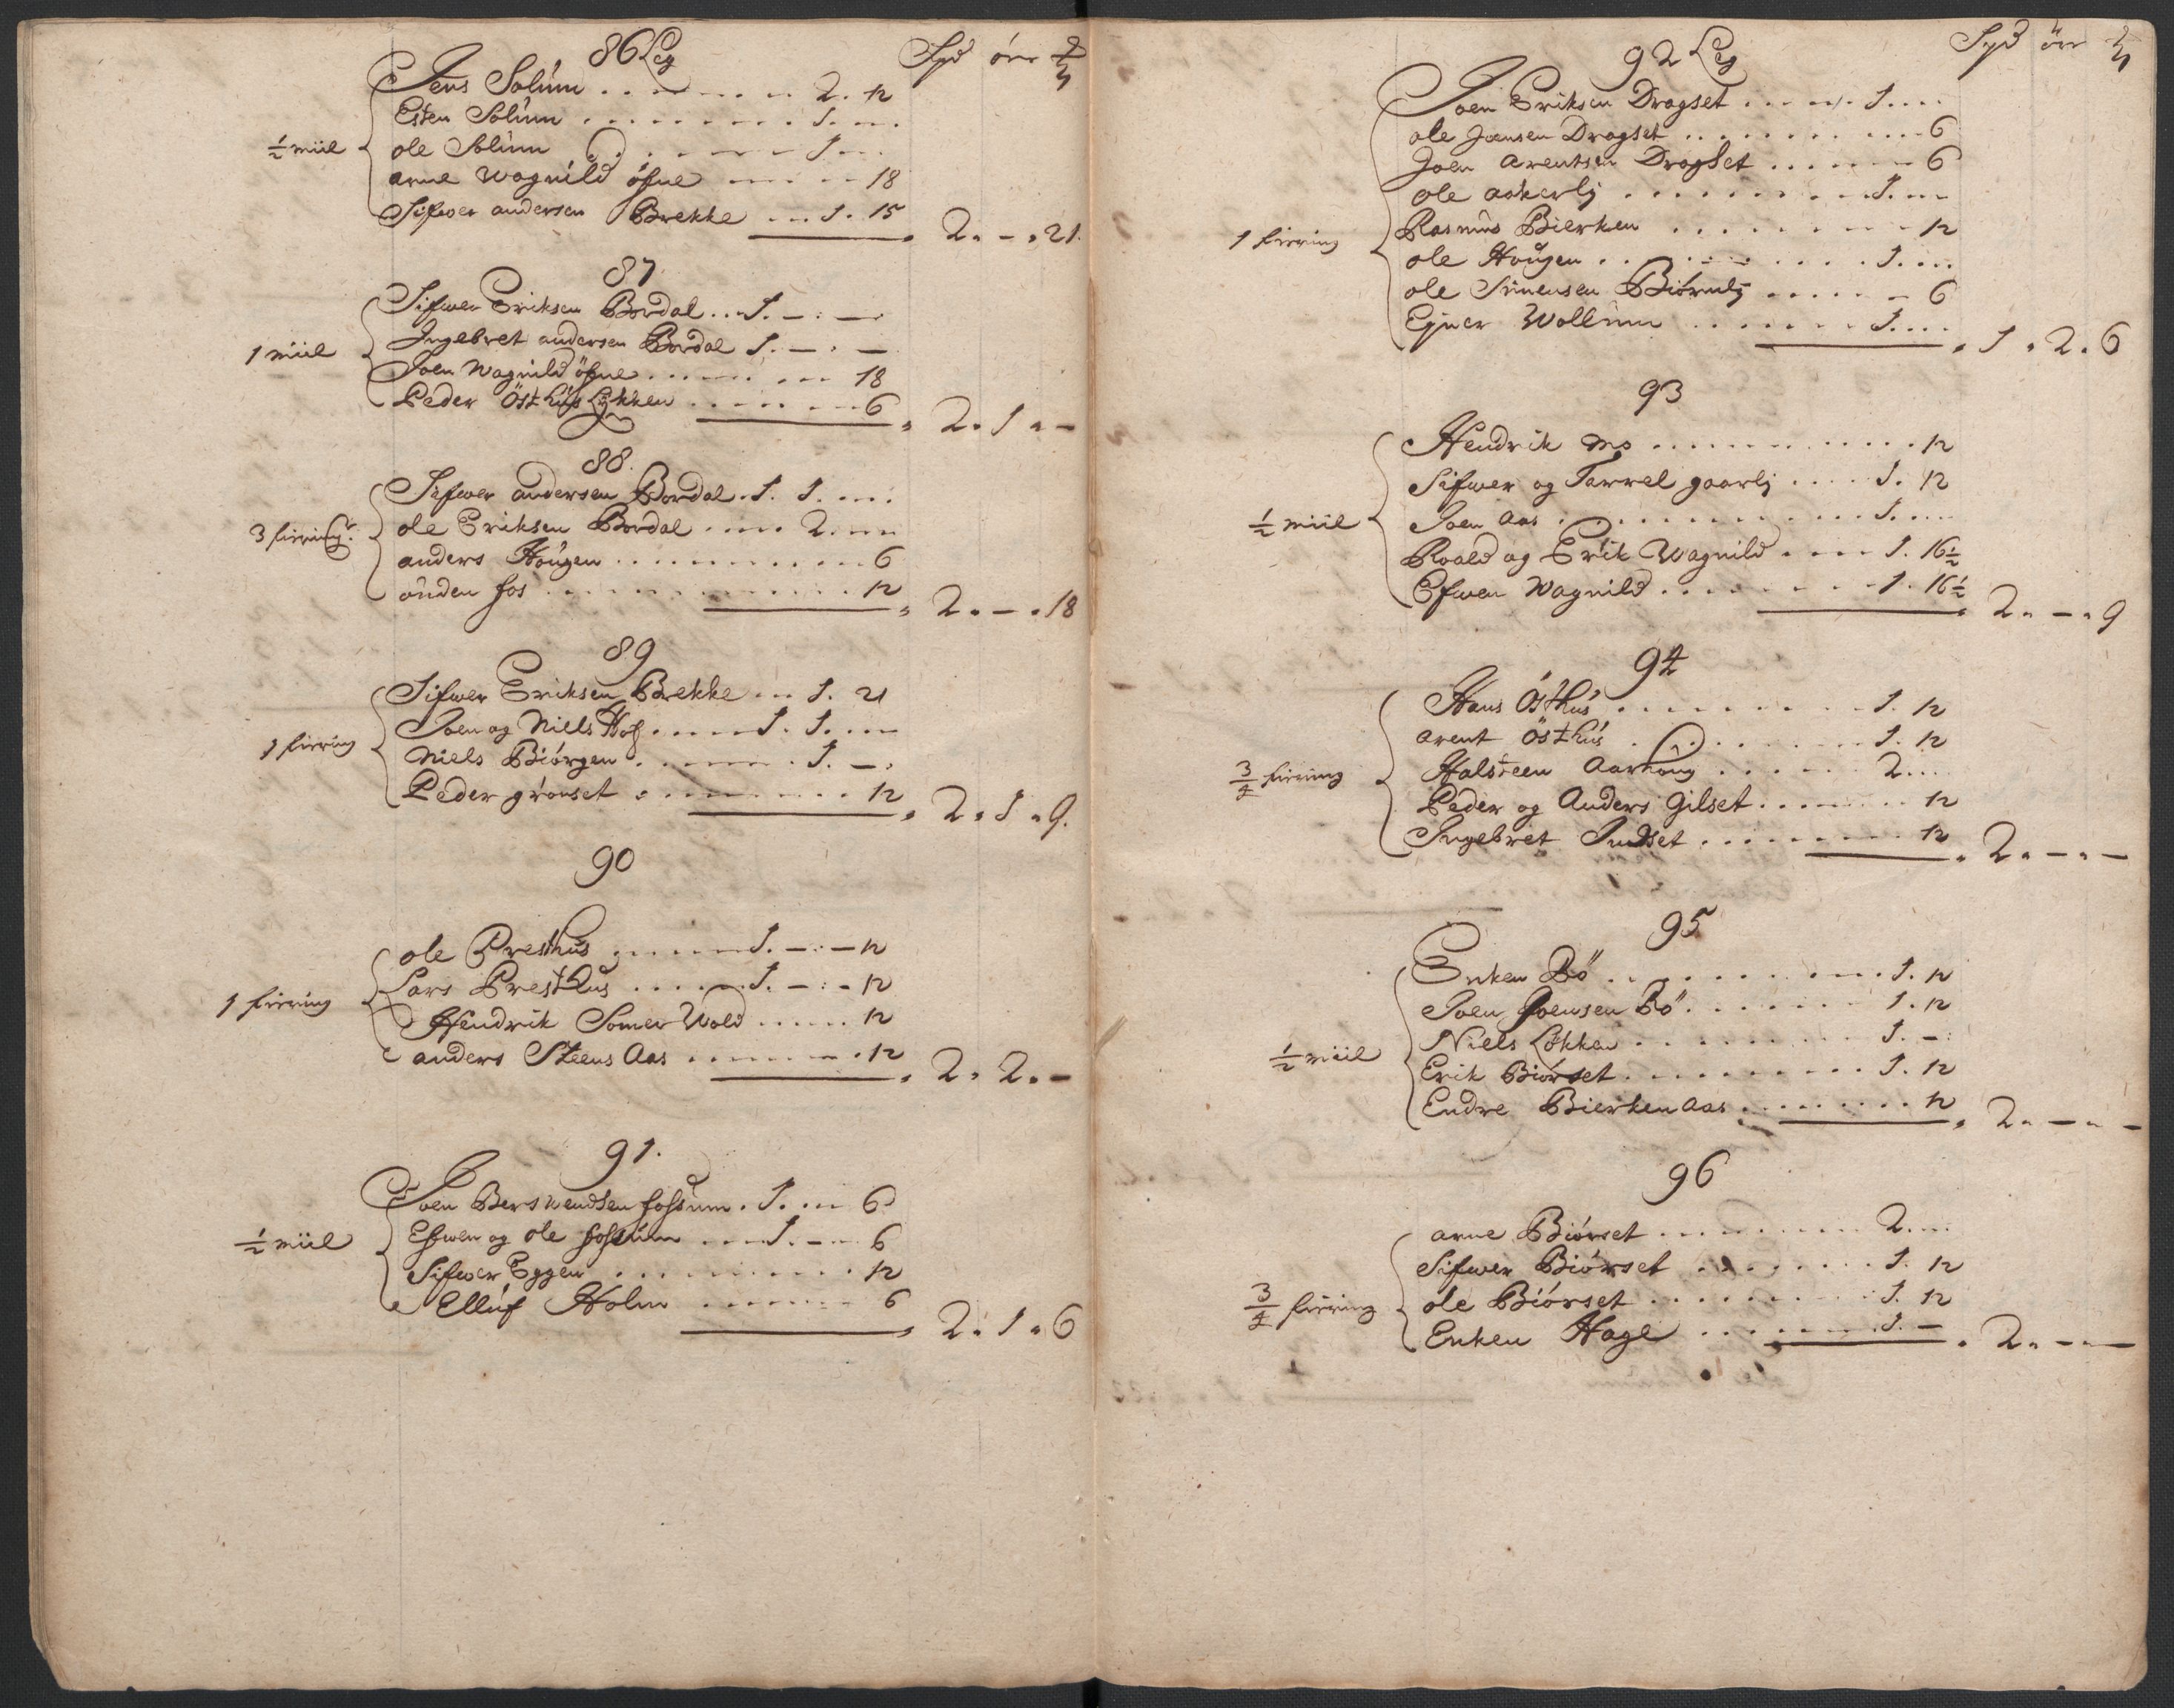 86 Leg Spd örr
Jens Solum . . . . . . . 2. 12
Esten Solum . . . . . . . . 1. . .
½ miil ole Solum . . . . . . 1 . . .
arne Wagnild öfne . . . . . 18
Sifwer andersen Brekke . . . 1. 15 2. – . 21.
87
Sifwer Eriksen Bordal . . . 1. – . –
1 miil Ingebret andersen Bordal 1. – . –
Joen Wagnild öfne . . . . . . . . 18
Peder Östhus Lykken . . . . . . . 6 2. 1 . –
88.
Sifwer andersen Bordal . 1. 1. . . .
3 firring ole Eriksen Bordal . . . . 2. . . .
anders Hougen . . . . . . . . . . . 6
önden fos . . . . . . . . . . . . . 12 2. – . 18
89
Sifwer Eriksen Brekke . . . 1. 21
1 firring Joen og Niels Hof . . . . 1. 1. . . .
Niels Biörgen . . . . . . . 1. – .
Peder grönset . . . . . . . . . 12 2. 1 . 9.
90
ole Presthus . . . . . . 1. – . – 12
1 firring Lars Presthus . . . . . 1. – . – 12
Hendrik Somer Wold . . . . . 12
anders Steens Aas . . . . . . . 12 2. 2. –
91.
Joen Berswendsen fossum . 1. . . 6
½ miil Efwen og ole fossum . . . 1. – . 6
Sifwer Eggen . . . . . . . . . . 12
Elluf Holm . . . . . . . 6 2. 1. 6
92 Leg Spd örr
Joen Eriksen Dragset . . . . . 1. . . .
ole Joensen Dragset . . . . . . . . . . 6
Joen arentsen Dragset . . . . . . 6
ole aakerly . . . . . . . . . 1. . .
1 firring Rasmus Bierken . . . . . . . . 12
ole Hougen . . . . . . . . . . 1. . . .
ole Simensen Biörnly . . . . . . 6
Ejner Wollum . . . . . . . 1. . . . 1. 2. 6
93
Hendrik Mo . . . . . . . . . . . 12
Sifwer og Tarrel gaarly . . . . 1. 12
½ miil Joen Aas . . . . . . . . . . . . 1. . . .
Roald og Erik Wagnild . . . . 1. 16½
Efwen Wagnild . . . . . . . . 1. 16½ 2. – . 9
94
Hans Östhus . . . . . . . . . 1. 12
arent Östhus . . . . . . . . . 1. 12
¾ firring Halsteen Aarhoug . . . . . . 2. . . .
Peder og Anders Gilset . . . . . . . 12
Ingebret Indset . . . . . . . . . 12 2. – . –
95
Enken Bö . . . . . . . . . . . 1. 12
Joen Joensen Bö . . . . . . . 1. 12
½ miil Niels Lökken . . . . . . . . . 1. –
Erik Biörset . . . . . . . . . . 1. 12
Endre Bierken Aas . . . . . . . . . 12 2. – . –
96
arne Biörset . . . . . . . . . 2. . . .
Sifwer Biörset . . . . . . . 1. 12
¾ firring ole Biörset . . . . . . . . . 1. 12
Enken Hage . . . . . . . 1. – 2. – . –